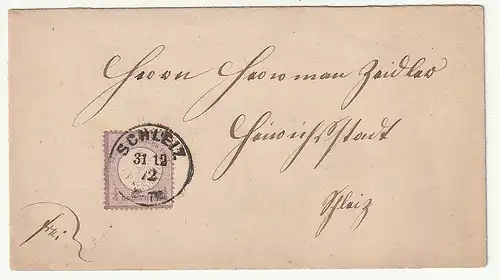 Herrn Herrman Zeidler
Heinrichsstadt
Schleiz
SCHLEIZ
31 12
72
frei